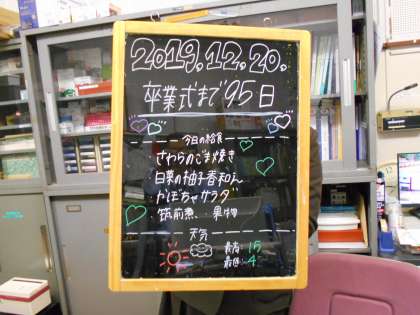 2019.12.20.
卒業式まで95日
今日の給食
・さわらのごま焼き
・白菜の柚子香和え
・かぼちゃサラダ
・筑前煮 ・果物
天気
最高 15
最低 4